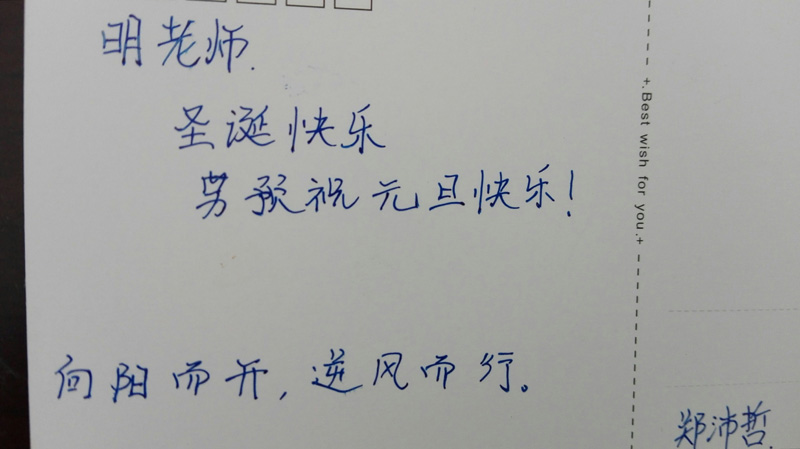 明老师.
圣诞快乐
另预祝元旦快乐！
向阳而开，逆风而行。
+.Best wish for you.+
郑沛哲.